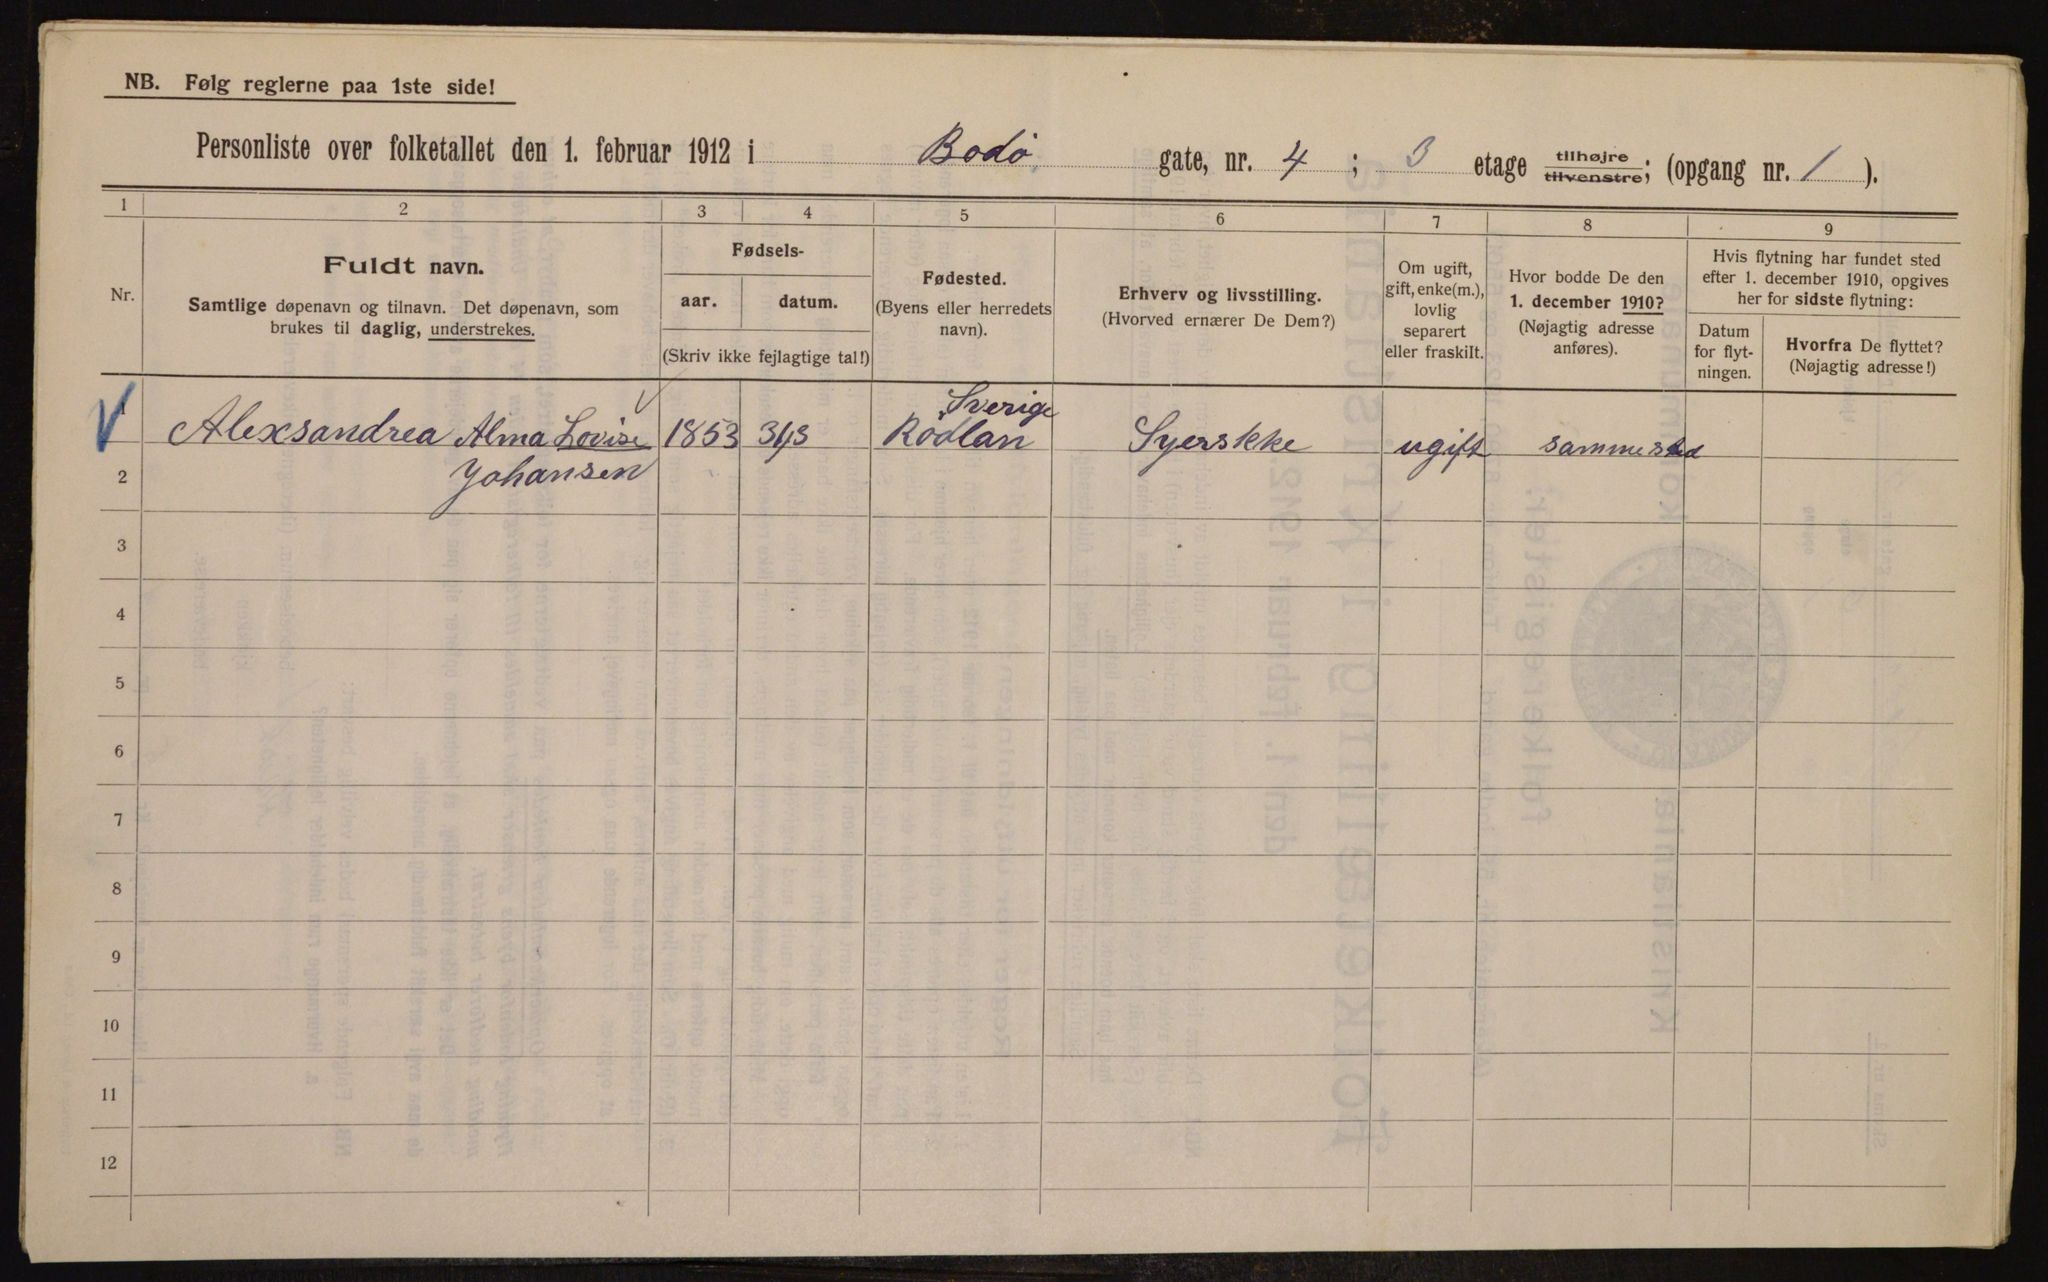 NB. Følg reglerne paa 1ste side!
Personliste over folketallet den 1. februar 1912 i Bodø gate, nr. 4; 3 etage tilhøjre tilvenstre; (opgang nr. 1).
1 2 3 4 5 6 7 8 9
Nr.
Fuldt navn.
Samtlige døpenavn og tilnavn. Det døpenavn, som
brukes til daglig, understrekes.
Fødsels-
aar. datum.
(Skriv ikke fejlagtige tal!)
Fødested.
(Byens eller herredets
navn).
Erhverv og livsstilling.
(Hvorved ernærer De Dem?)
Om ugift,
gift, enke(m.),
lovlig
separert
eller fraskilt.
Hvor bodde De den
1. december 1910?
(Nøjagtig adresse
anføres).
Hvis flytning har fundet sted
efter 1. december 1910, opgives
her for sidste flytning:
Datum
for flyt-
ningen.
Hvorfra De flyttet?
(Nøjagtig adresse!)
Sverige
1 Alexsandrea Alma Lovise 1853 Rødlan Syerskke ugift sammested
2 Johansen
3
4
5
6
7
8
9
10
11
12